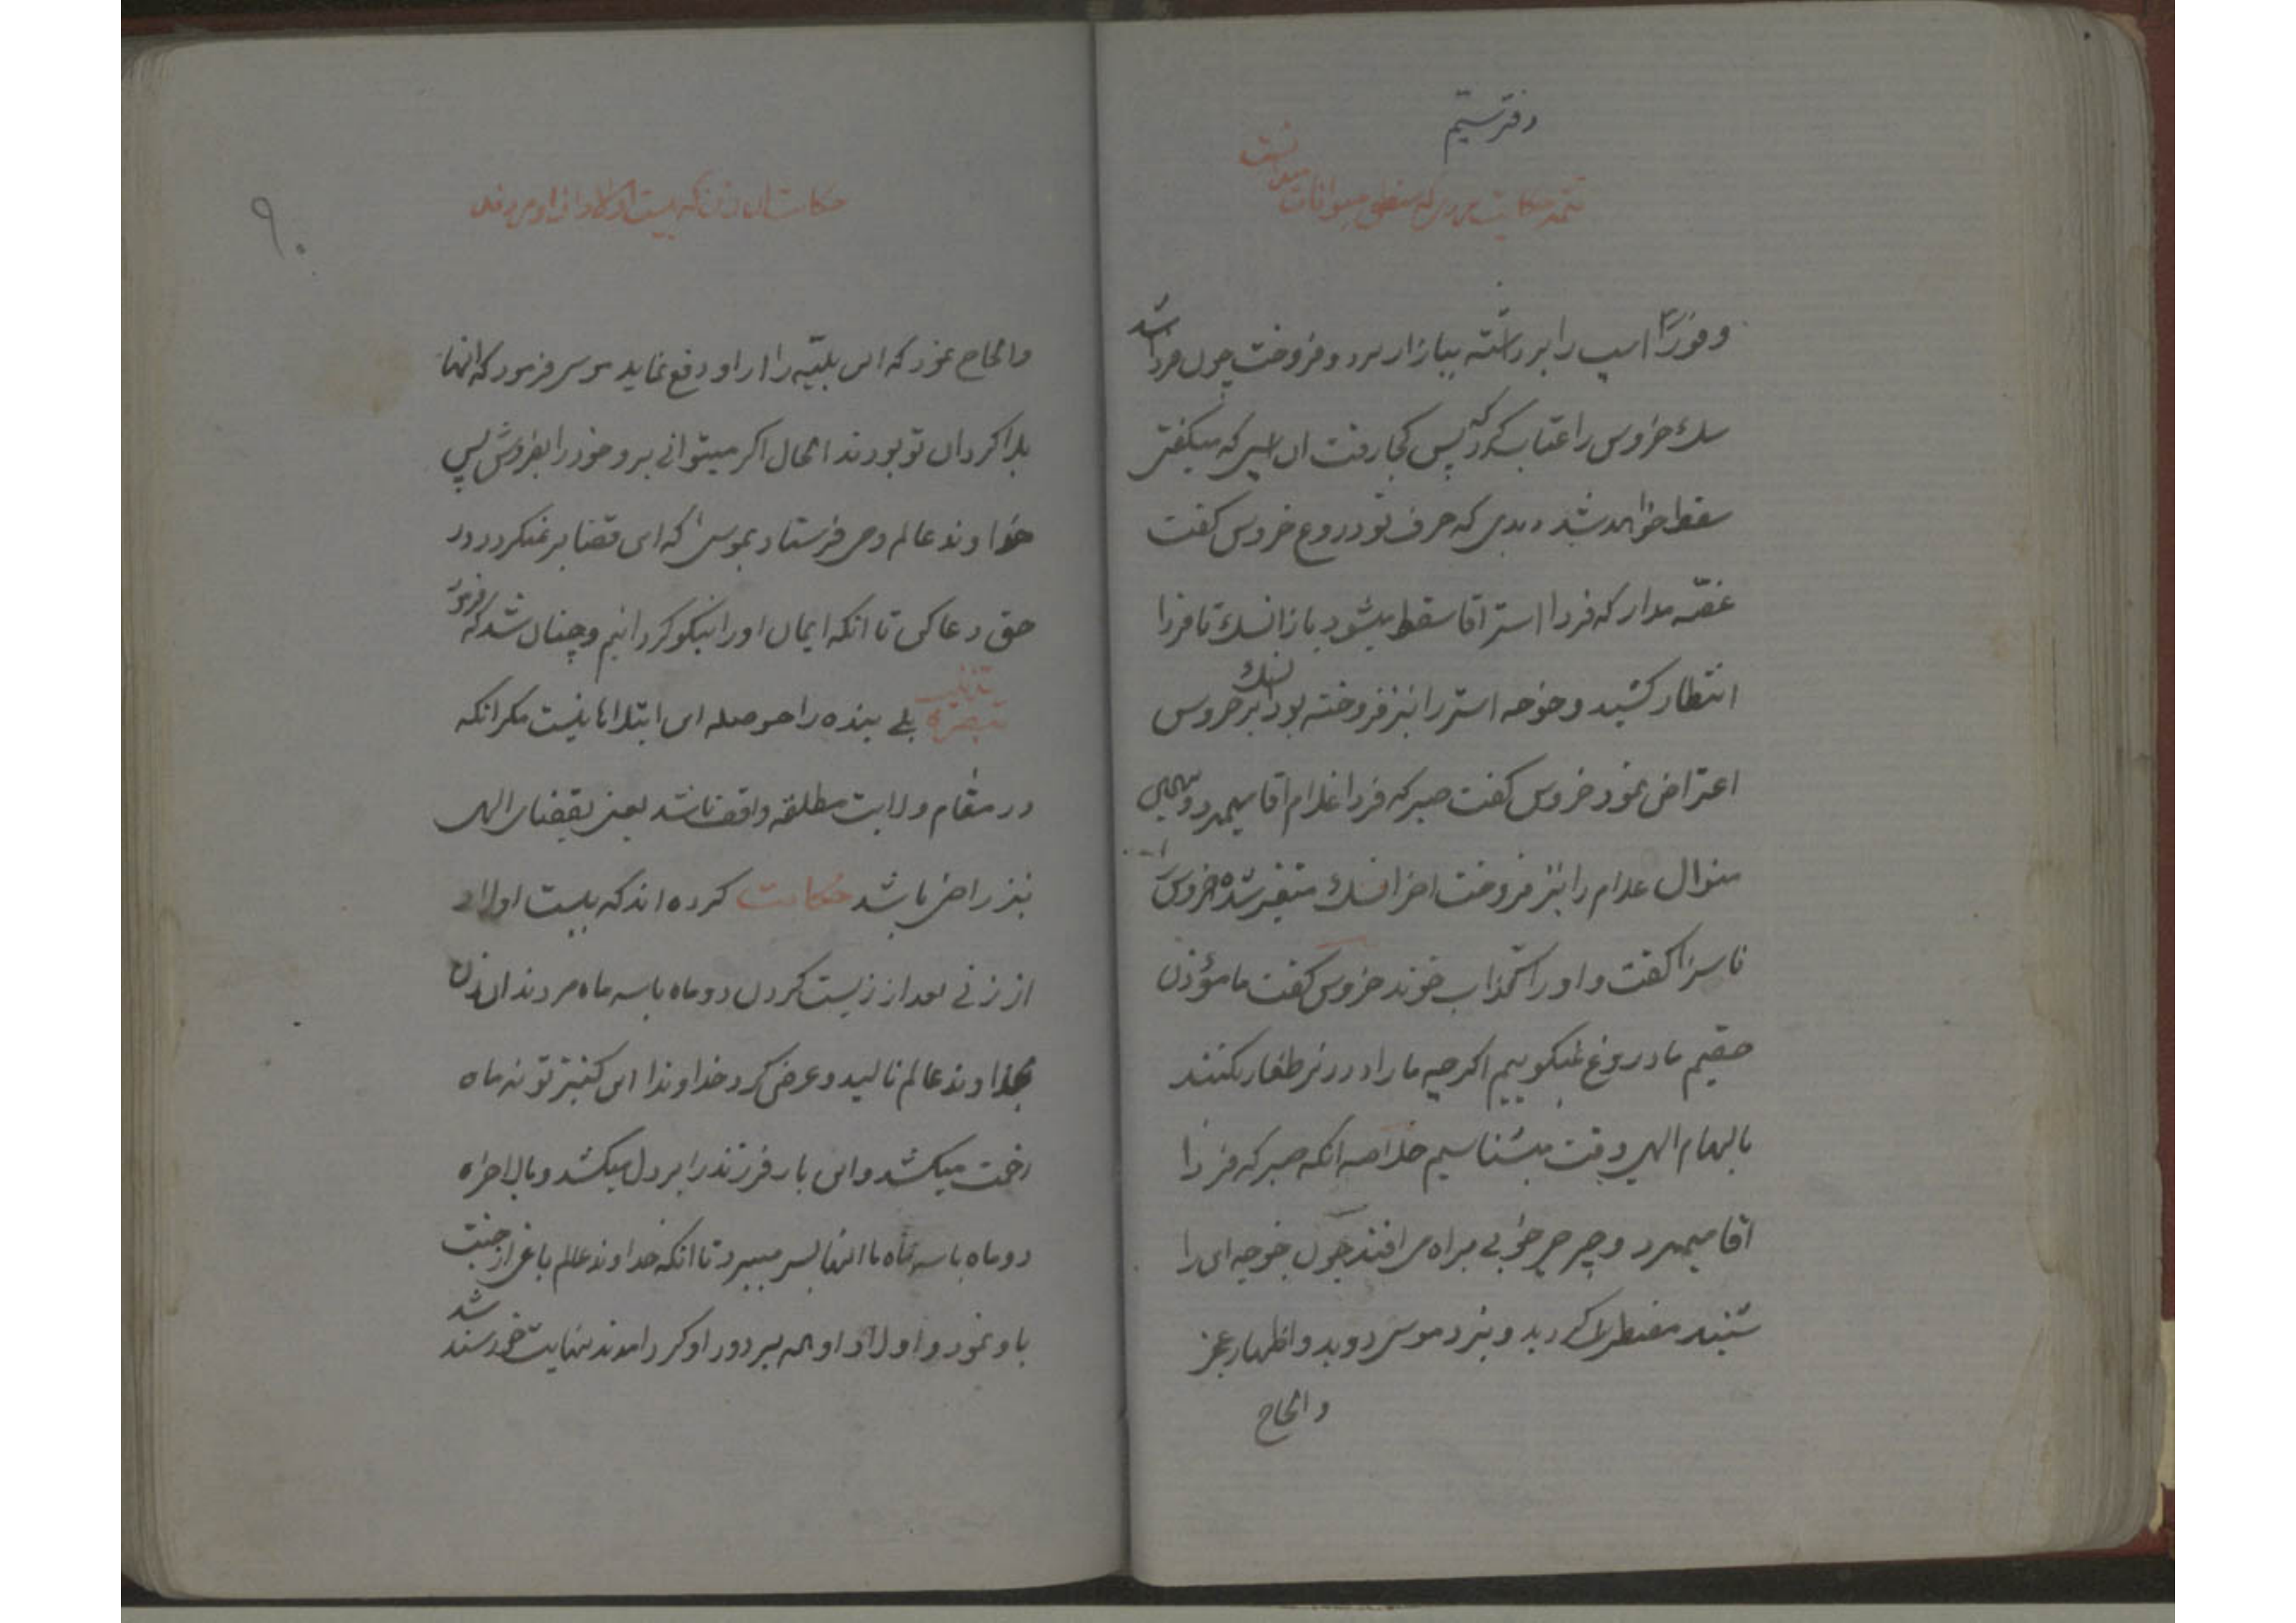 دفتر سیّم
تتمه حکایت مردی که منطق حیوانات میدانست
و فوراً اسپ را برداشته ببازار برد و فروخت چون فردا شد
سک خروس را عتاب کرد که پس کجا رفت ان اسپی که میکفتی
سقط خواهد شد دیدی که حرف تو دروغ خروس کفت
غصّه مدار که فردا استر اقا سقط میشود باز انسک تا فردا
انتظار کشید و خوجه استر را نیز فروخته بود انسک بر خروس
اعتراض نمود خروس کفت صبر که فردا غلام اقا میمیرد و بهمین
منوال غلام را نیز فروخت اخر انسک متغیر شده خروس را
ناسزا کفت و او را کذاب خوند خروس کفت ما مؤذن
حقیم ما دروغ نمیکوییم اکرچه ما را در زیر طغار کنند
بالهام الهی وقت میشناسیم خلاصه انکه صبر که فردا
اقا میمیرد و چرچر خوبی براه می افتد چون خوجه ای را
شنید مضطرب کردید و بنزد موسی دوید و اظهار عجز
و الحاح
حکایت ان زن که بیست اولاد از او مردند
۹۰
و الحاح نمود که این بلیّه را از او دفع نماید موسی فرمود که انها
بلا کردان تو بودند الحال اکر میتوانی برو خود را بفروش پس
خداوند عالم وحی فرستاد بموسی که ای قضا بر نمیکردد در
حق دعا کن تا انکه ایمان او را نیکو کردانیم و چنان شد که فرمود
تذنیب
تبصرة بلے بنده را حوصله ای ابتلاها نیست مکر انکه
در مقام ولایت مطلقه واقف باشد یعنی بقضای الهی
نیز راضی باشد حکایت کرده اند که بیست اولاد
از زنی بعد از زیست کردن دو ماه یا سه ماه مردند ان زن
بخداوند عالم نالید و عرض کرد خداوندا این کنیز تو نه ماه
زحمت میکشد و این بار فرزند را بر دل میکشد و بالاخره
دو ماه یا سه ماه با انها بسر میبرد تا انکه خداوند عالم باغی از جنت
باو نمود و اولاد او همه بر دور او کرد امدند بنهایت خورسند شد